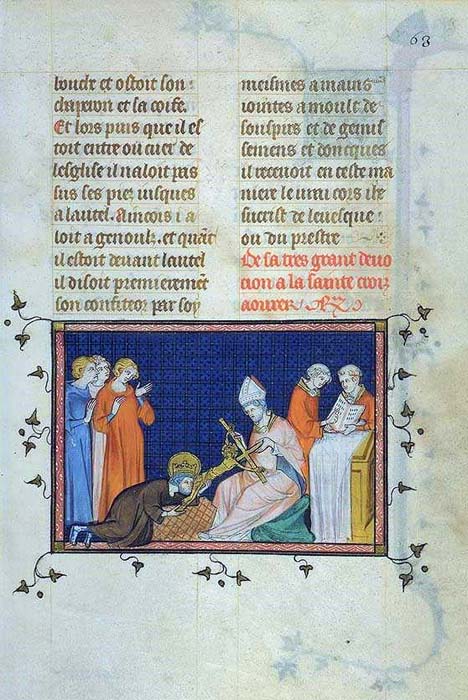 63
bouche et ostoit son
chaperon et sa coife.
Et lors puis que il es
toit entre ou cuer de
leglise il naloit pas
sus ses piez iusques
a lautel. Aincois i a
loit a genoulz. et quāt
il estoit deuant lautel
il disoit premieremēt
son confiteor par soy
meismes a mains
iointes a moult de
souspirs et de gemis
semens et doncques
il receuoit en ceste ma
niere le urai cors ihe
sucrist de leuesque
ou du prestre
De sa tres grant deuo
cion a la sainte croiz
aourer